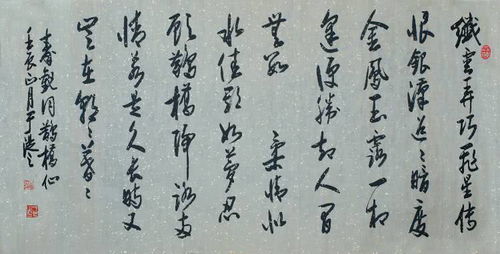 纖雲弄巧飛星傳
恨銀漢迢々暗度
金風玉露一相
逢便勝卻人間
無數 柔情似
水佳期如夢忍
顧鵲橋歸路兩
情若是久長時又
豈在朝々暮々
秦觀詞鵲橋仙
壬辰正月于